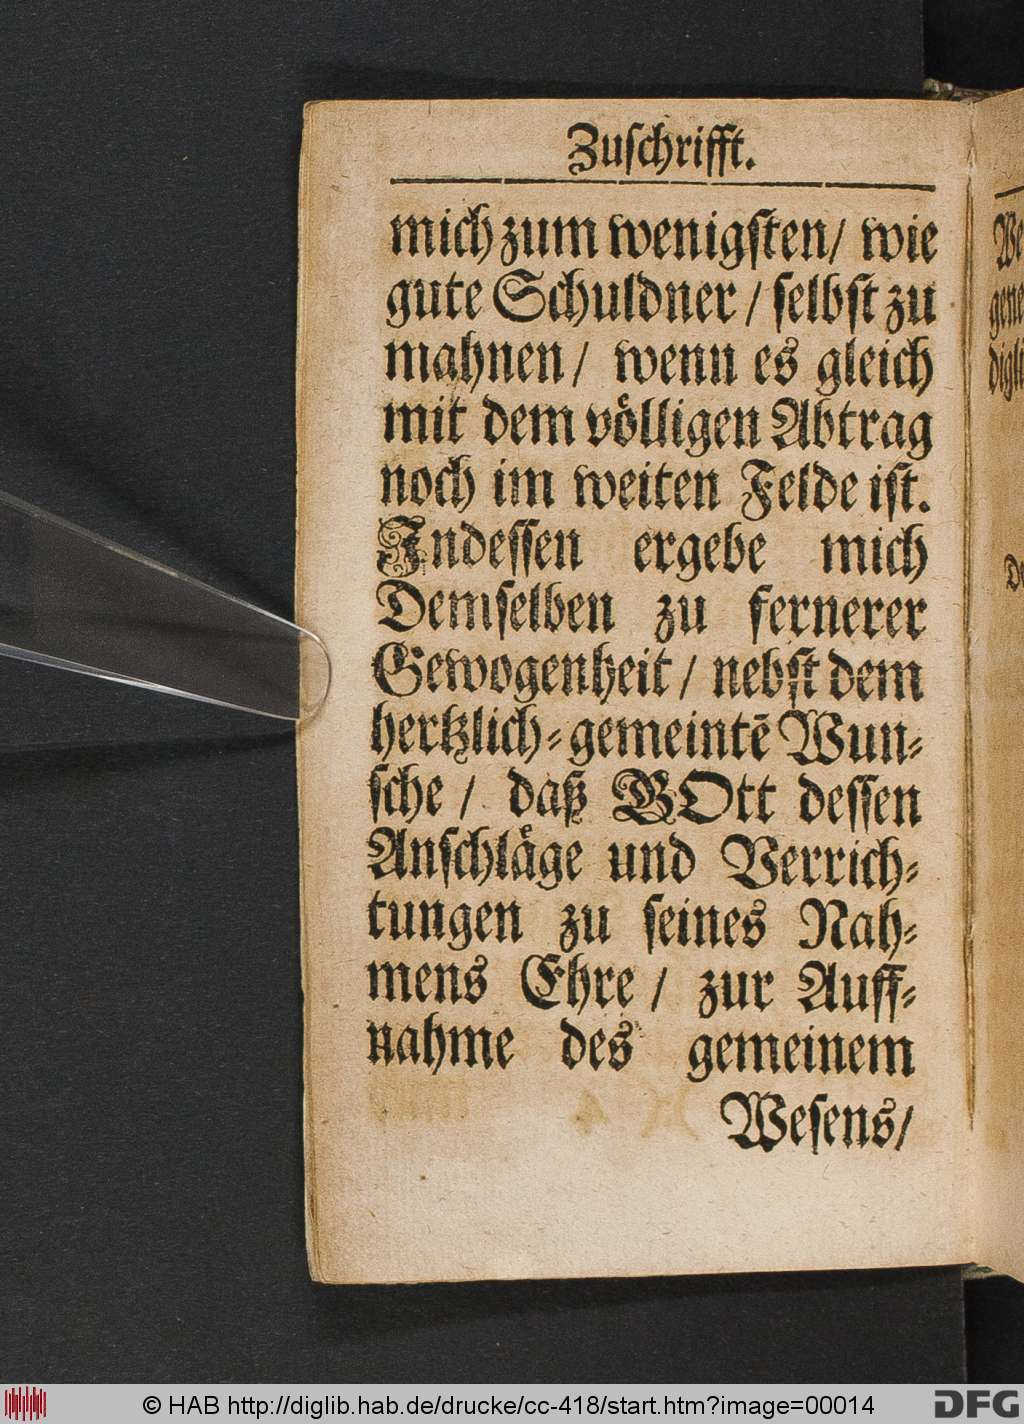 Zuſchrifft.
mich zum wenigſten/ wie
gute Schuldner / ſelbſt zu
mahnen/ wenn es gleich
mit dem voͤlligen Abtrag
noch im weiten Felde iſt.
Indeſſen ergebe mich
Demſelben zu fernerer
Gewogenheit / nebſt dem
hertzlich⸗gemeintē Wun⸗
ſche / daß GOtt deſſen
Anſchlaͤge und Verrich⸗
tungen zu ſeines Nah⸗
mens Ehre / zur Auff⸗
nahme des gemeinem
Weſens/
We
gene
digli
© HAB http://diglib.hab.de/drucke/cc-418/start.htm?image=00014
DFG